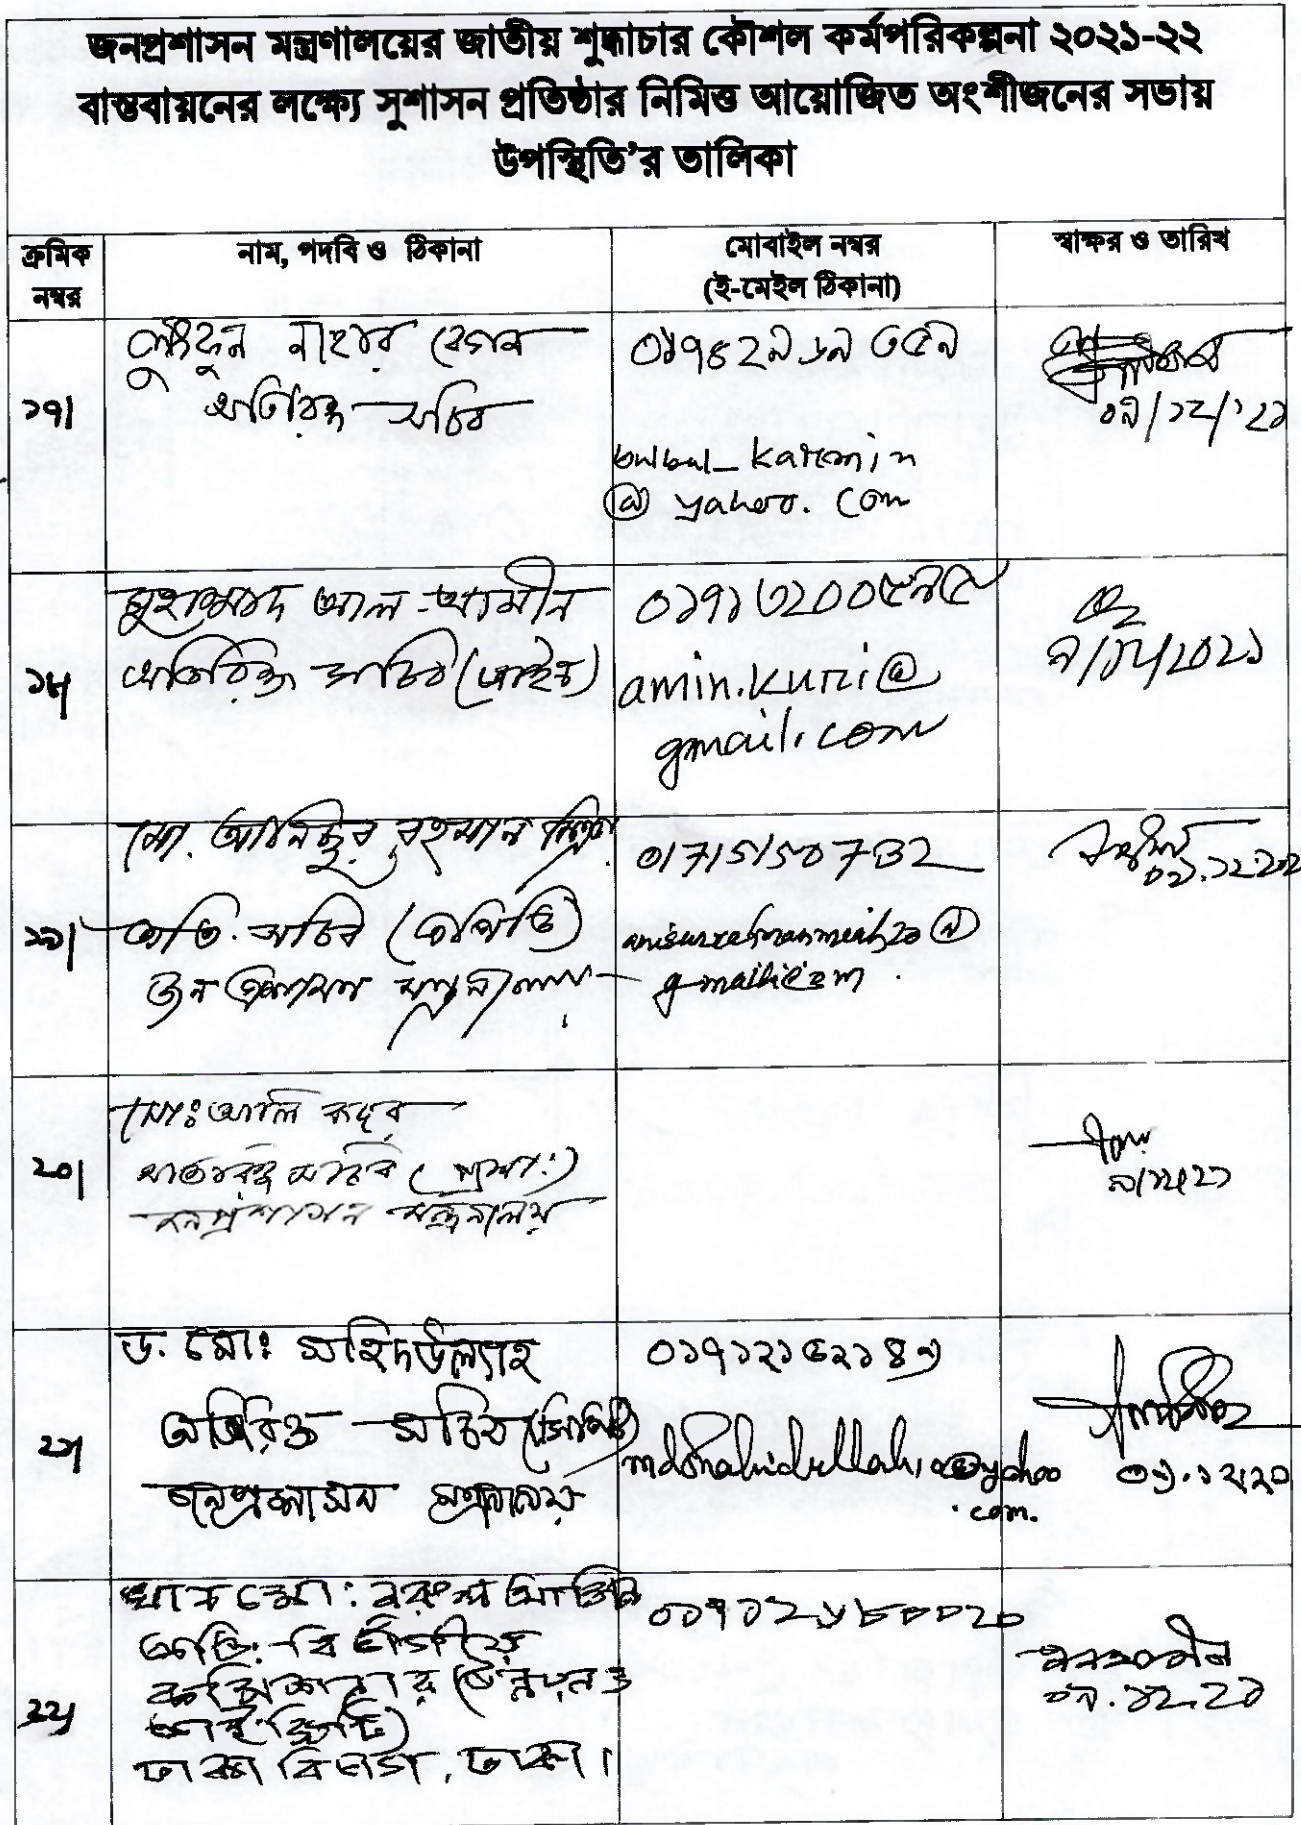 জনপ্রশাসন মন্ত্রণালয়ের জাতীয় শুদ্ধাচার কৌশল কর্মপরিকল্পনা ২০২১-২২
বাস্তবায়নের লক্ষ্যে সুশাসন প্রতিষ্ঠার নিমিত্ত আয়োজিত অংশীজনের সভায়
উপস্থিতি’র তালিকা
ক্রমিক নম্বর
নাম, পদবি ও ঠিকানা
মোবাইল নম্বর
(ই-মেইল ঠিকানা)
স্বাক্ষর ও তারিখ
১৭।
নাহার বেগম
অতিরিক্ত সচিব
@ yahoo. com
০৯/১২/২১
১৮।
মুহাম্মদ আল-আমীন
অতিরিক্ত সচিব (আইন)
০১৭১৩২০০৫৯৫
amin.kuri@
gmail.com
৯/১২/২০২১
১৯।
মো. আনিছুর রহমান মিঞা
অতি. সচিব
জন প্রশাসন মন্ত্রনালয়
01715150732
anisurrahmanmiah20@
gmail.com
২০।
মোঃ আলি কদর
অতিরিক্ত সচিব (প্রশা:)
জনপ্রশাসন মন্ত্রনালয়
৯/১২/২১
২১।
ড. মোঃ সহিদউল্যাহ
অতিরিক্ত সচিব (সিপিটি)
জনপ্রশাসন মন্ত্রনালয়
yahoo
.com.
২২।
খান মো: নূরুল আমিন
অতি: বিভাগীয়
কমিশনার (উন্নয়ন ও
আইসিটি)
ঢাকা বিভাগ, ঢাকা।
০৯.১২.২১